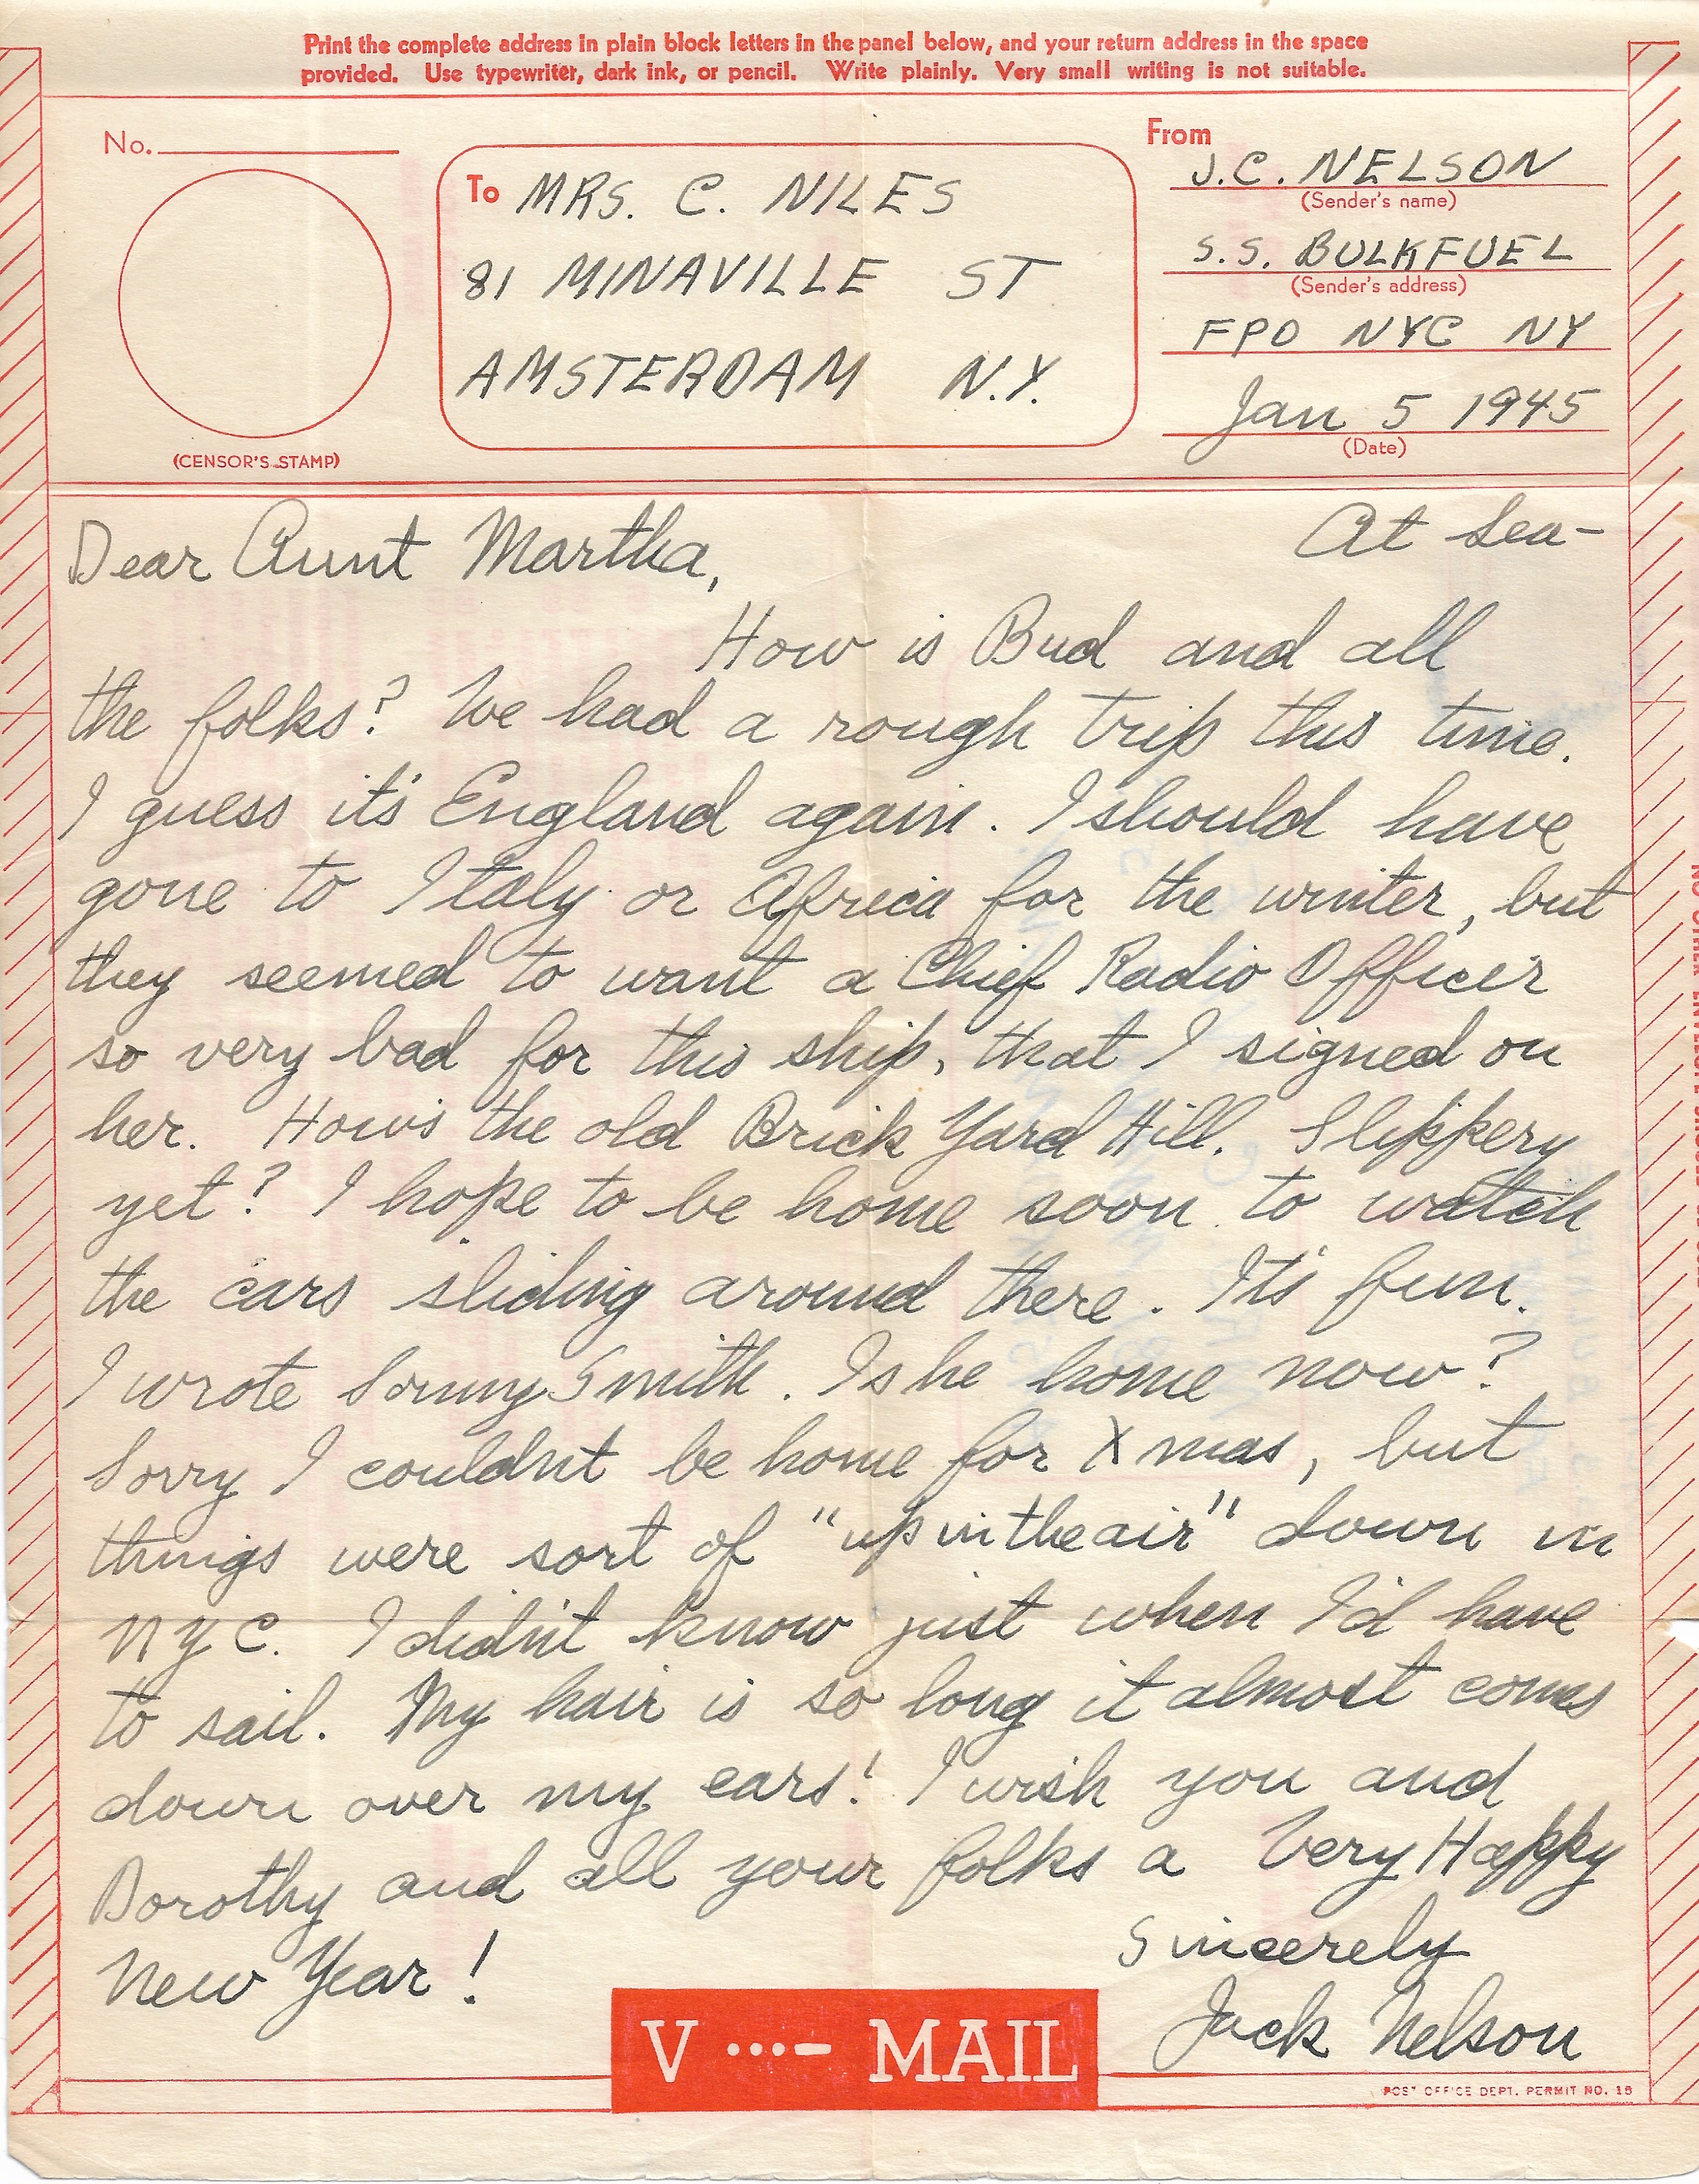 Print the complete address in plain block letters in the panel below, and your return address in the space
provided. Use typewriter, dark ink, or pencil. Write plainly. Very small writing is not suitable.
No.
(CENSOR'S STAMP)
To MRS. C. NILES
81 MINAVILLE ST
AMSTERDAM N.Y.
From
J.C. NELSON
(Sender's name)
S.S. BULKFUEL
(Sender's address)
FPO NYC NY
Jan 5 1945
(Date)
At Sea-
Dear Aunt Martha,
How is Bud and all
the folks? We had a rough trip this time.
I guess it's England again. I should have
gone to Italy or Africa for the winter, but
they seemed to want a Chief Radio Officer
so very bad for this ship, that I signed on
her. How's the old Brick Yard Hill. Slippery
yet? I hope to be home soon to watch
the cars sliding around there. It's fun.
I wrote Sonny Smith. Is he home now?
Sorry I couldn't be home for Xmas, but
things were sort of "up in the air" down in
NYC. I didn't know just when I'd have
to sail. My hair is so long it almost comes
down over my ears! I wish you and
Dorothy and all your folks a Very Happy
New Year!
Sincerely
Jack Nelson
V ...- MAIL
POST OFFICE DEPT. PERMIT NO. 18